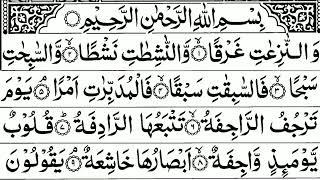 بِسْمِ اللّٰهِ الرَّحْمٰنِ الرَّحِيْمِ
وَالنّٰزِعٰتِ غَرْقًا ۙ﴿۱﴾ وَّالنّٰشِطٰتِ نَشْطًا ۙ﴿۲﴾ وَّالسّٰبِحٰتِ
سَبْحًا ۙ﴿۳﴾ فَالسّٰبِقٰتِ سَبْقًا ۙ﴿۴﴾ فَالْمُدَبِّرٰتِ اَمْرًا ۘ﴿۵﴾ يَوْمَ
تَرْجُفُ الرَّاجِفَةُ ۙ﴿۶﴾ تَتْبَعُهَا الرَّادِفَةُ ؕ﴿۷﴾ قُلُوْبٌ
يَّوْمَئِذٍ وَّاجِفَةٌ ۙ﴿۸﴾ اَبْصَارُهَا خَاشِعَةٌ ۘ﴿۹﴾ يَقُوْلُوْنَ